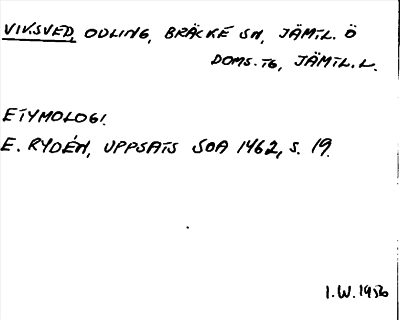 VIVSVED, ODLING, BRÄCKE SN, JÄMTL. Ö
DOMS. TG, JÄMTL. L.
ETYMOLOGI.
E. RYDÉN, UPPSATS SOA 1462, S. 19.
I.W. 1956